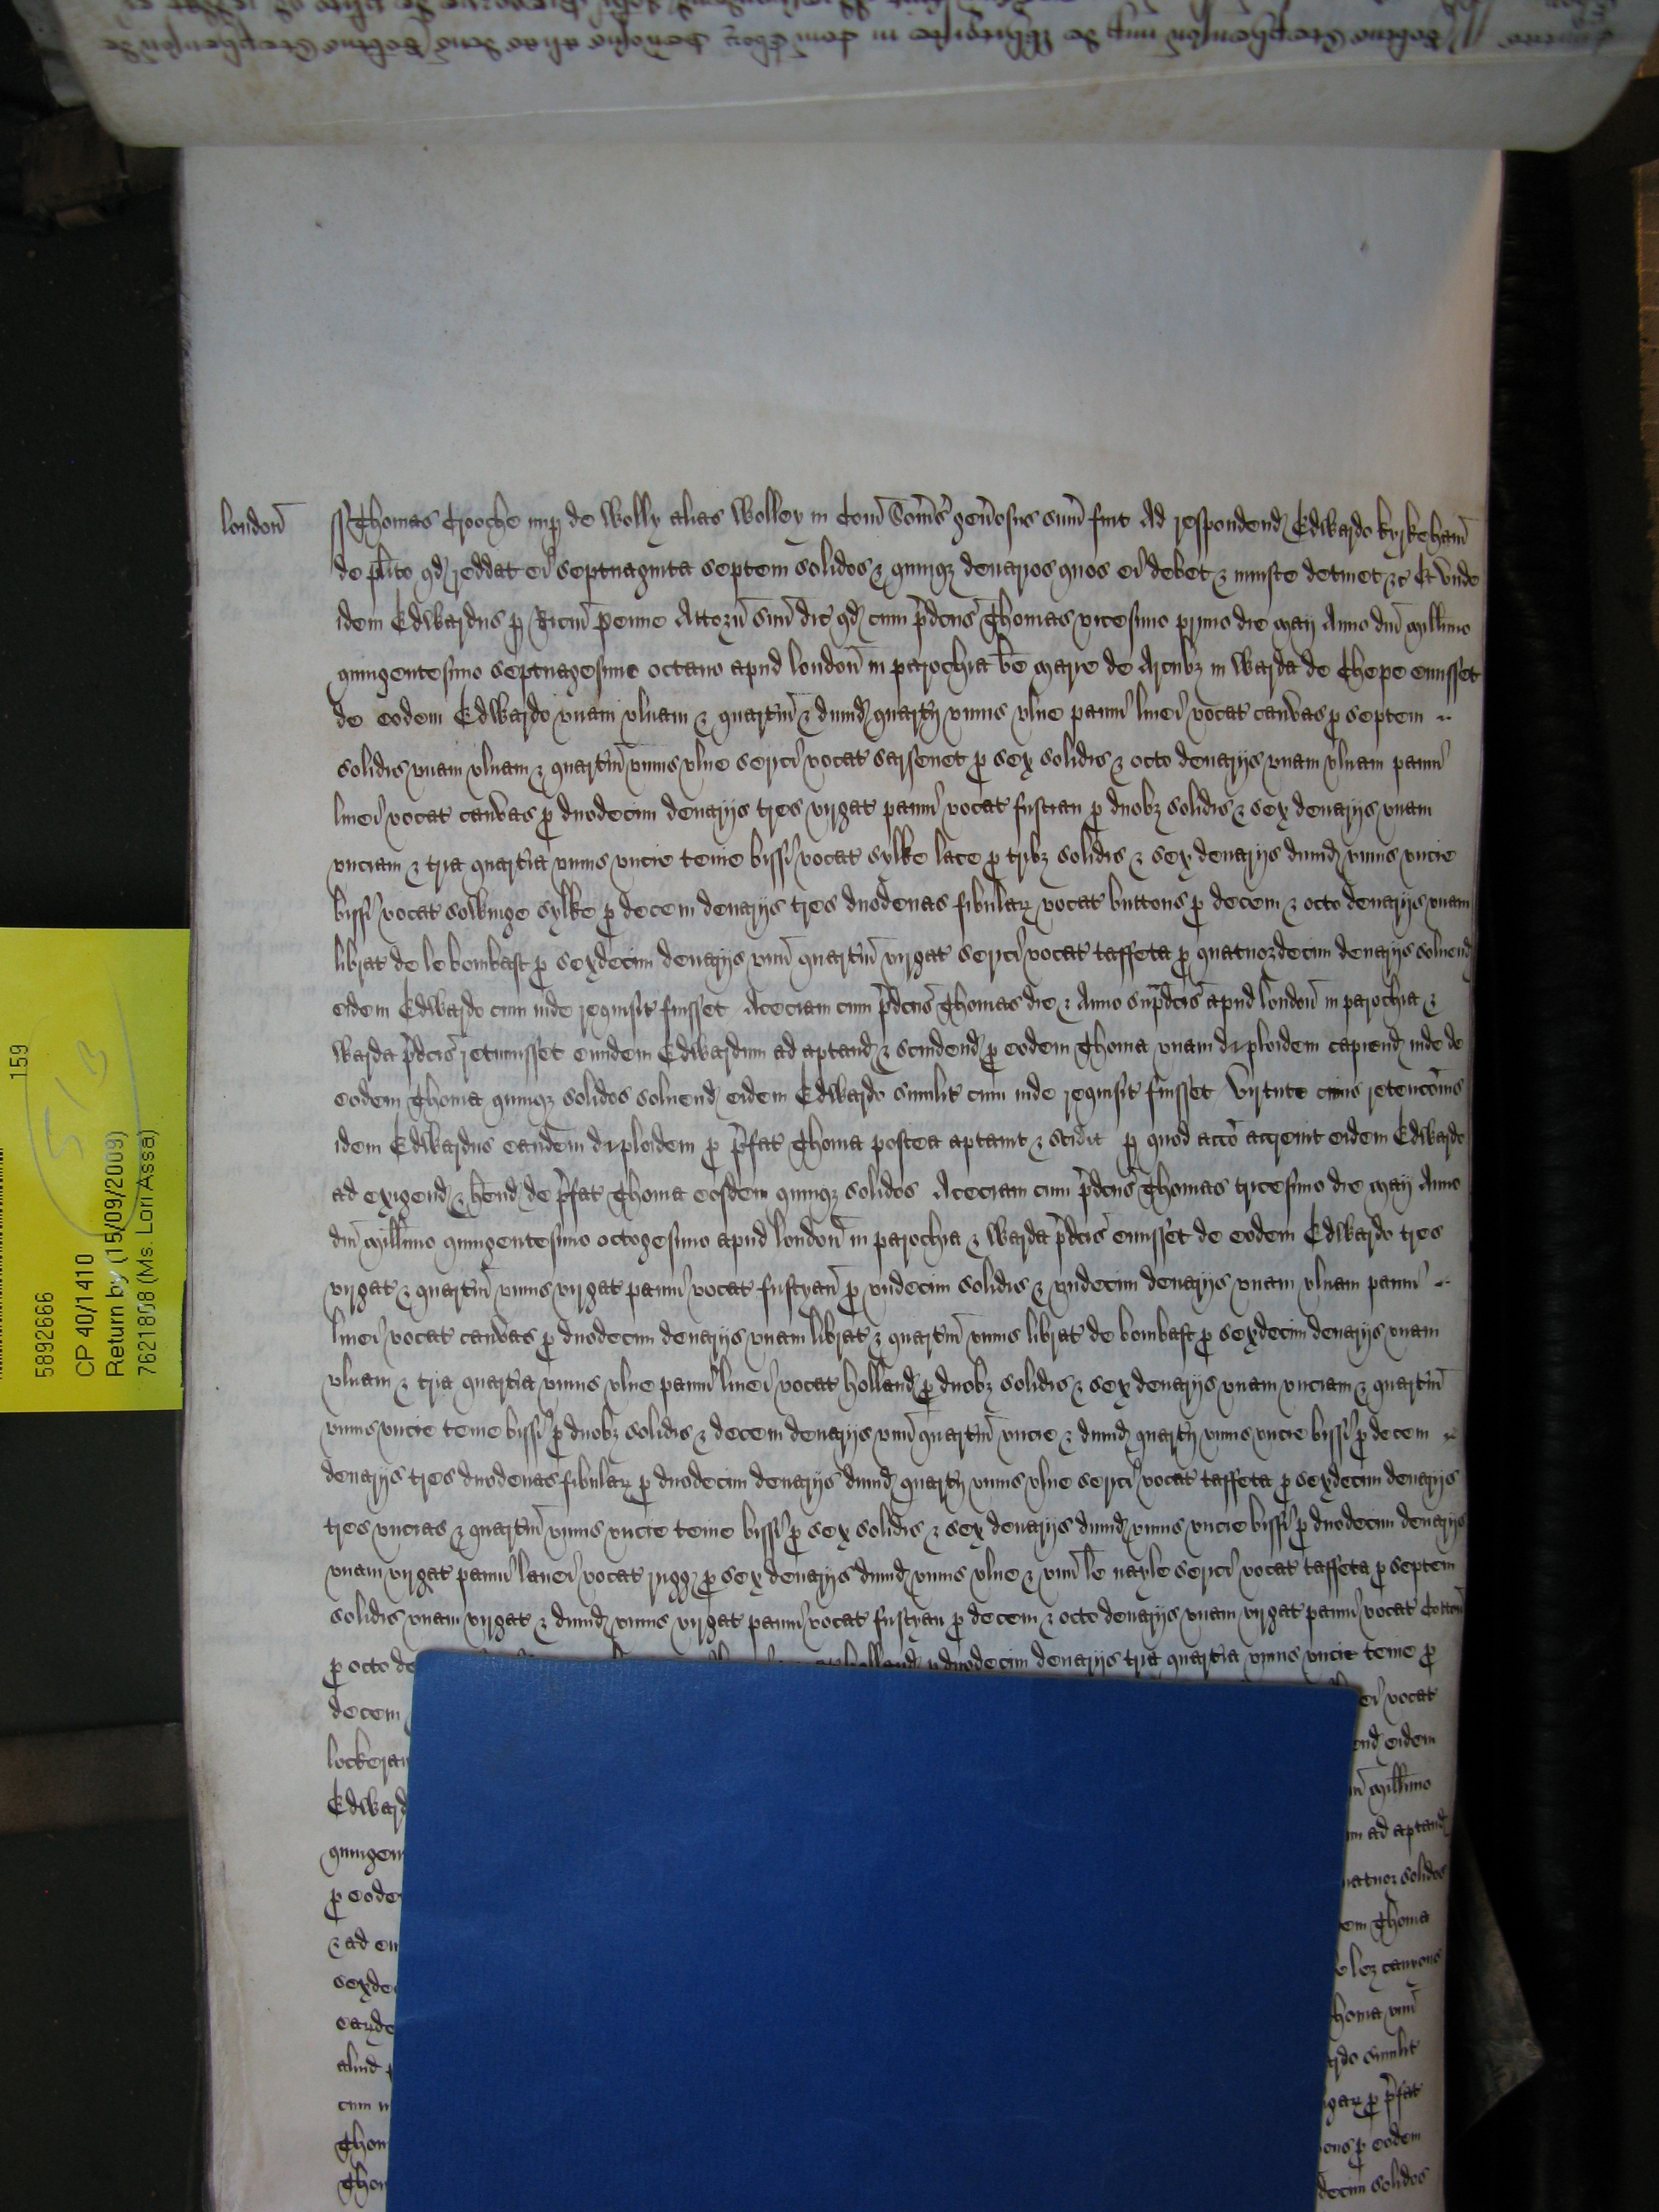 london̄
Thomas Crooche nup de Wolly alias Wolley in Com̄ Som̄s gen̄osus sum̄ fuit Ad respondend Edwardo kyrkeham̄
de plito qd reddat ei septuaginta septem solidos & quinqz denarios quos ei debet & iniuste detinet &c Et vnde
idem Edwardus p Ricm̄ Penne Attorn̄ suū dic qd cum p̄dcus Thomas vicesimo primo die maij Anno dn̄i millimo
quingentesimo septuagesimo octauo apud london̄ in parochia be marie de Arcubz in warda de Chepe emisset
de eodem Edwardo vnam vlnam & quartiū & dimid quartij vnius vlne panni linei vocat canvas p septem
solidis vnam vlnam & quartiū vnius vlne serici vocat sarsenet p sex solidis & octo denarijs vnam vlnam panni
linei vocat canvas p duodecim denarijs tres virgat panni vocat fustian p duobz solidis & sex denarijs vnam
vnciam & tria quartia vnius vncie tenie bissi vocat sylke lace p tribz solidis & sex denarijs dimid vnius vncie
bissi vocat sowinge sylke p decem denarijs tres duodenas fibular vocat buttons p decem & octo denarijs vnam
librat de le bombast p sexdecim denarijs vnū quartiū virgat serici vocat taffeta p quatuordecim denarijs soluend
eidem Edwardo cum inde requisit fuisset Aceciam cum p̄dcus Thomas die & Anno sup̄dcis apud london̄ in parochia &
warda p̄dcis retinuisset eundem Edwardum ad aptand & scindend p eodem Thoma vnam diploidem capiend inde de
eodem Thoma quinqz solidos soluend eidem Edwardo similit cum inde requisit fuisset Virtute cuius retencōis
idem Edwardus eandem diploidem p p̄fat Thoma postea aptauit & scidit p quod accō accreuit eidem Edwardo
ad exigend & hend de p̄fat Thoma eosdem quinqz solidos Aceciam cum p̄dcus Thomas tricesimo die maij Anno
dn̄i millimo quingentesimo octogesimo apud london̄ in parochia & warda p̄dcis emisset de eodem Edwardo tres
virgat & quartiū vnius virgat panni vocat fustyan̄ p vndecim solidis & vndecim denarijs vnam vlnam panni
linei vocat canvas p duodecim denarijs vnam librat & quartiū vnius librat de bombast p sexdecim denarijs vnam
vlnam & tria quartia vnius vlne panni linei vocat holland p duobz solidis & sex denarijs vnam vnciam & quartiū
vnius vncie tenie bissi p duobz solidis & decem denarijs vnū quartiū vncie & dimid quartij vnius vncie bissi p decem
denarijs tres duodenas fibular p duodecim denarijs dimid quartij vnius vlne serici vocat taffeta p sexdecim denarijs
tres vncias & quartiū vnius vncie tenie bissi p sex solidis & sex denarijs dimid vnius vncie bissi p duodecim denarijs
vnam virgat panni lanei vocat rugg p sex denarijs dimid vnius vlne & vnū le nayle serici vocat taffeta p septem
solidis vnam virgat & dimid vnius virgat panni vocat fustyan p decem & octo denarijs vnam virgat panni vocat Cotton̄
p octo de holland p duodecim denarijs tria quartia vnius vncie tenie p
decem ei vocat
lockeram end eidem
Edward millimo
quingen ad aptand
p eodem quatuor solidos
& ad em Thoma
sexde lez canyons
homa vnū
aliud similit
cum p p̄fat
Thom p eodem
Thom decim solidos
159
5892666
CP 40/1410
Return by (15/09/2009)
7621808 (Ms. Lori Assa)
513